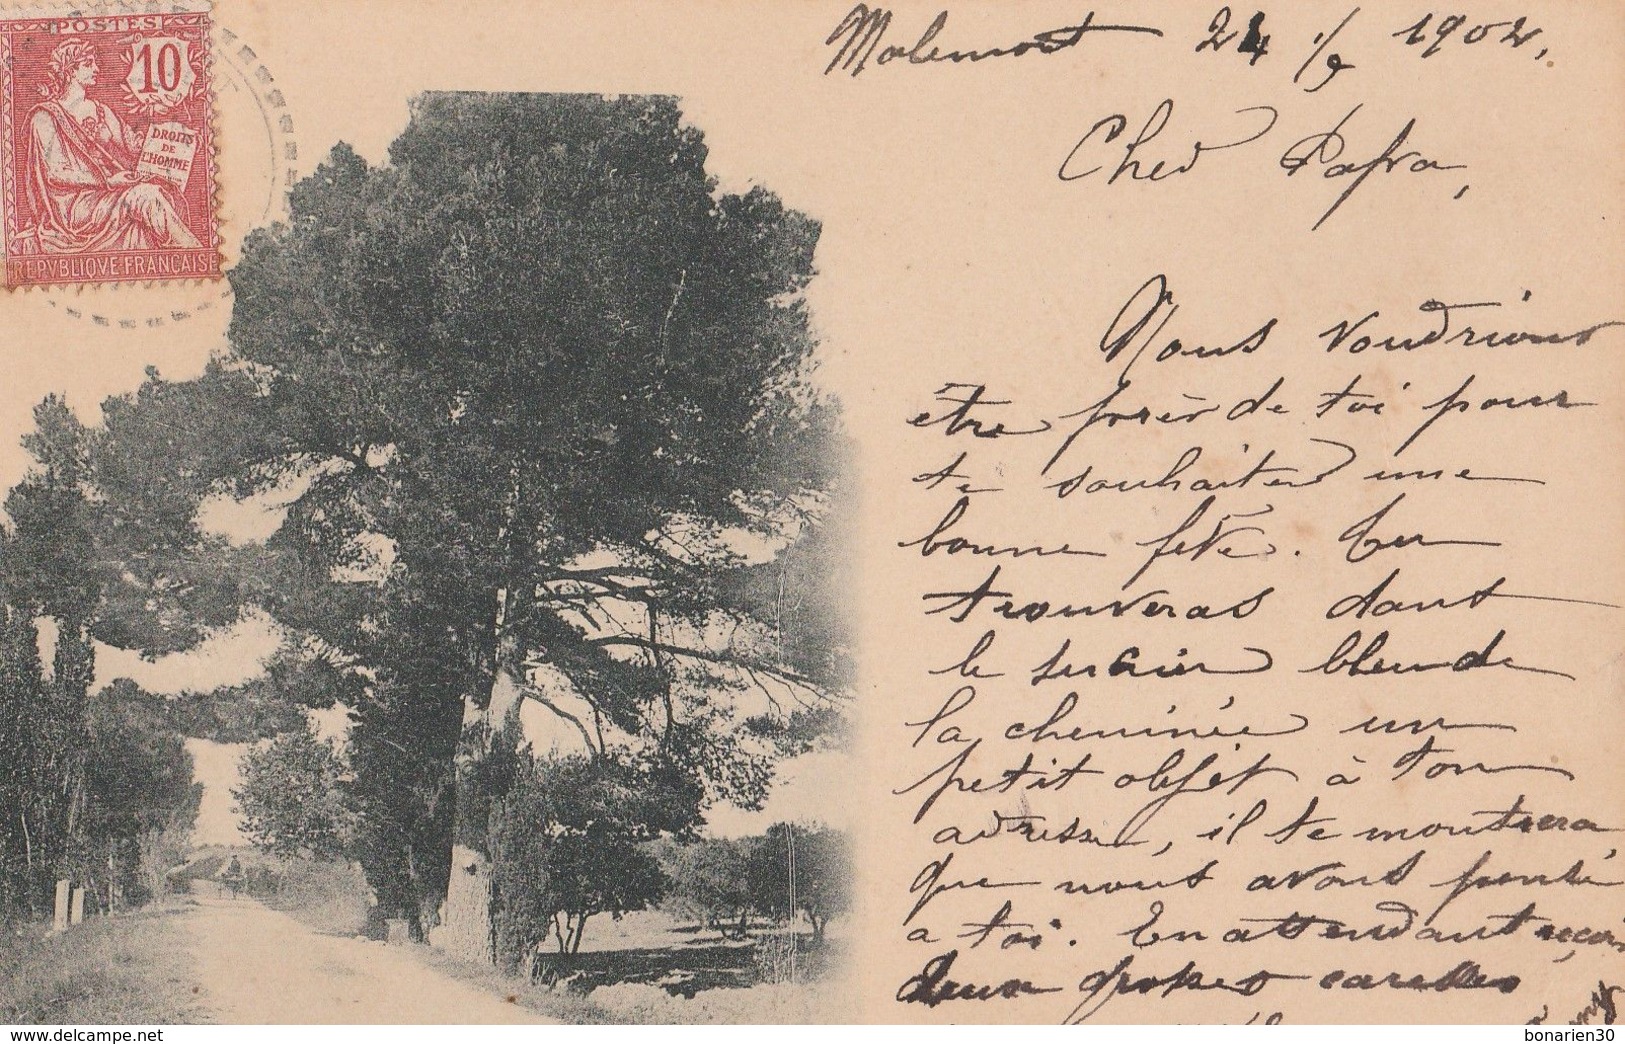 POSTES
10
DROITS
DE
L'HOMME
REPVBLIQVE FRANCAISE
Malemort 24 /9 1902.
Cher Papa,
Nous voudrions
être près de toi pour
te souhaiter une
bonne fête. Tu
trouveras dans
le bleu de
la cheminée un
petit objet à ton
adresse, il te montrera
que nous avons pensé
a toi. En attendant reçois
deux grosses caresses
www.delcampe.net
bonarien30